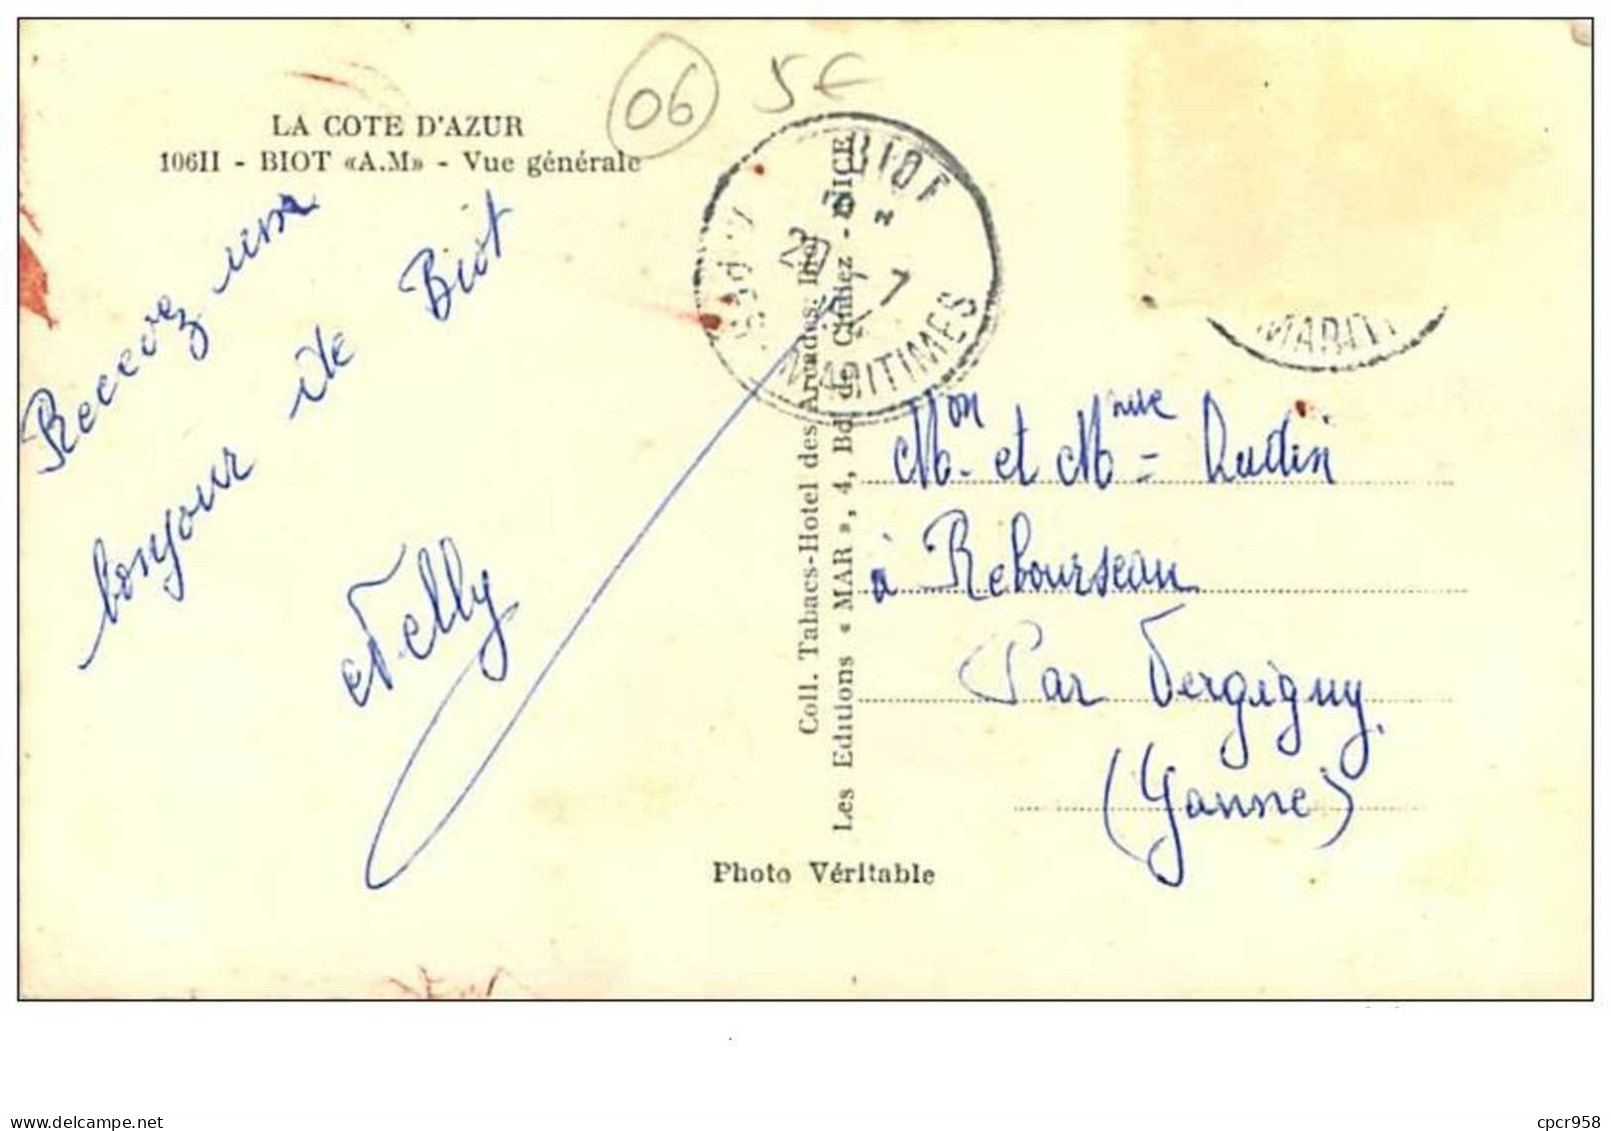 LA COTE D'AZUR
106II - BIOT «A.M» - Vue générale
06
5€
BIOT
20 - 7
MARITIMES
MARITI
Recevez un
bonjour de Biot
Nelly
Coll. Tabacs-Hotel des Arcades,
Les Editions « MAR », 4, Bd de Cimiez - NICE
Mon et Mme = Rudin
à Rebourseau
Par Vergigny.
(Yonne)
Photo Véritable
delcampe.net
cpcr958